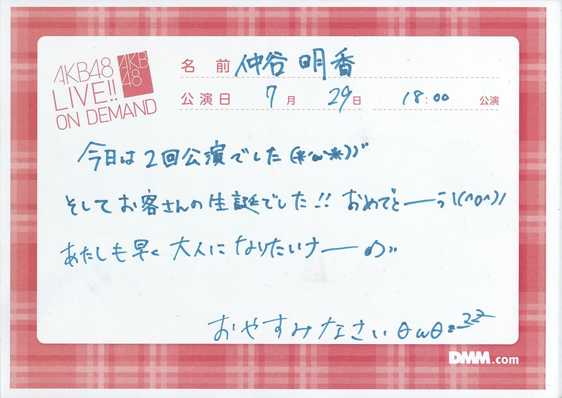 AKB48
LIVE!!
ON DEMAND
AKB
48
名 前 仲谷 明香
公演日 7月 29日 18:00 公演
今日は2回公演でした(*~*))"
そしてお客さんの生誕でした!! おめでとーう\(^o^)/
あたしも早く大人になりたいなーの"
おやすみなさいθωθ=zzz
DMM.com